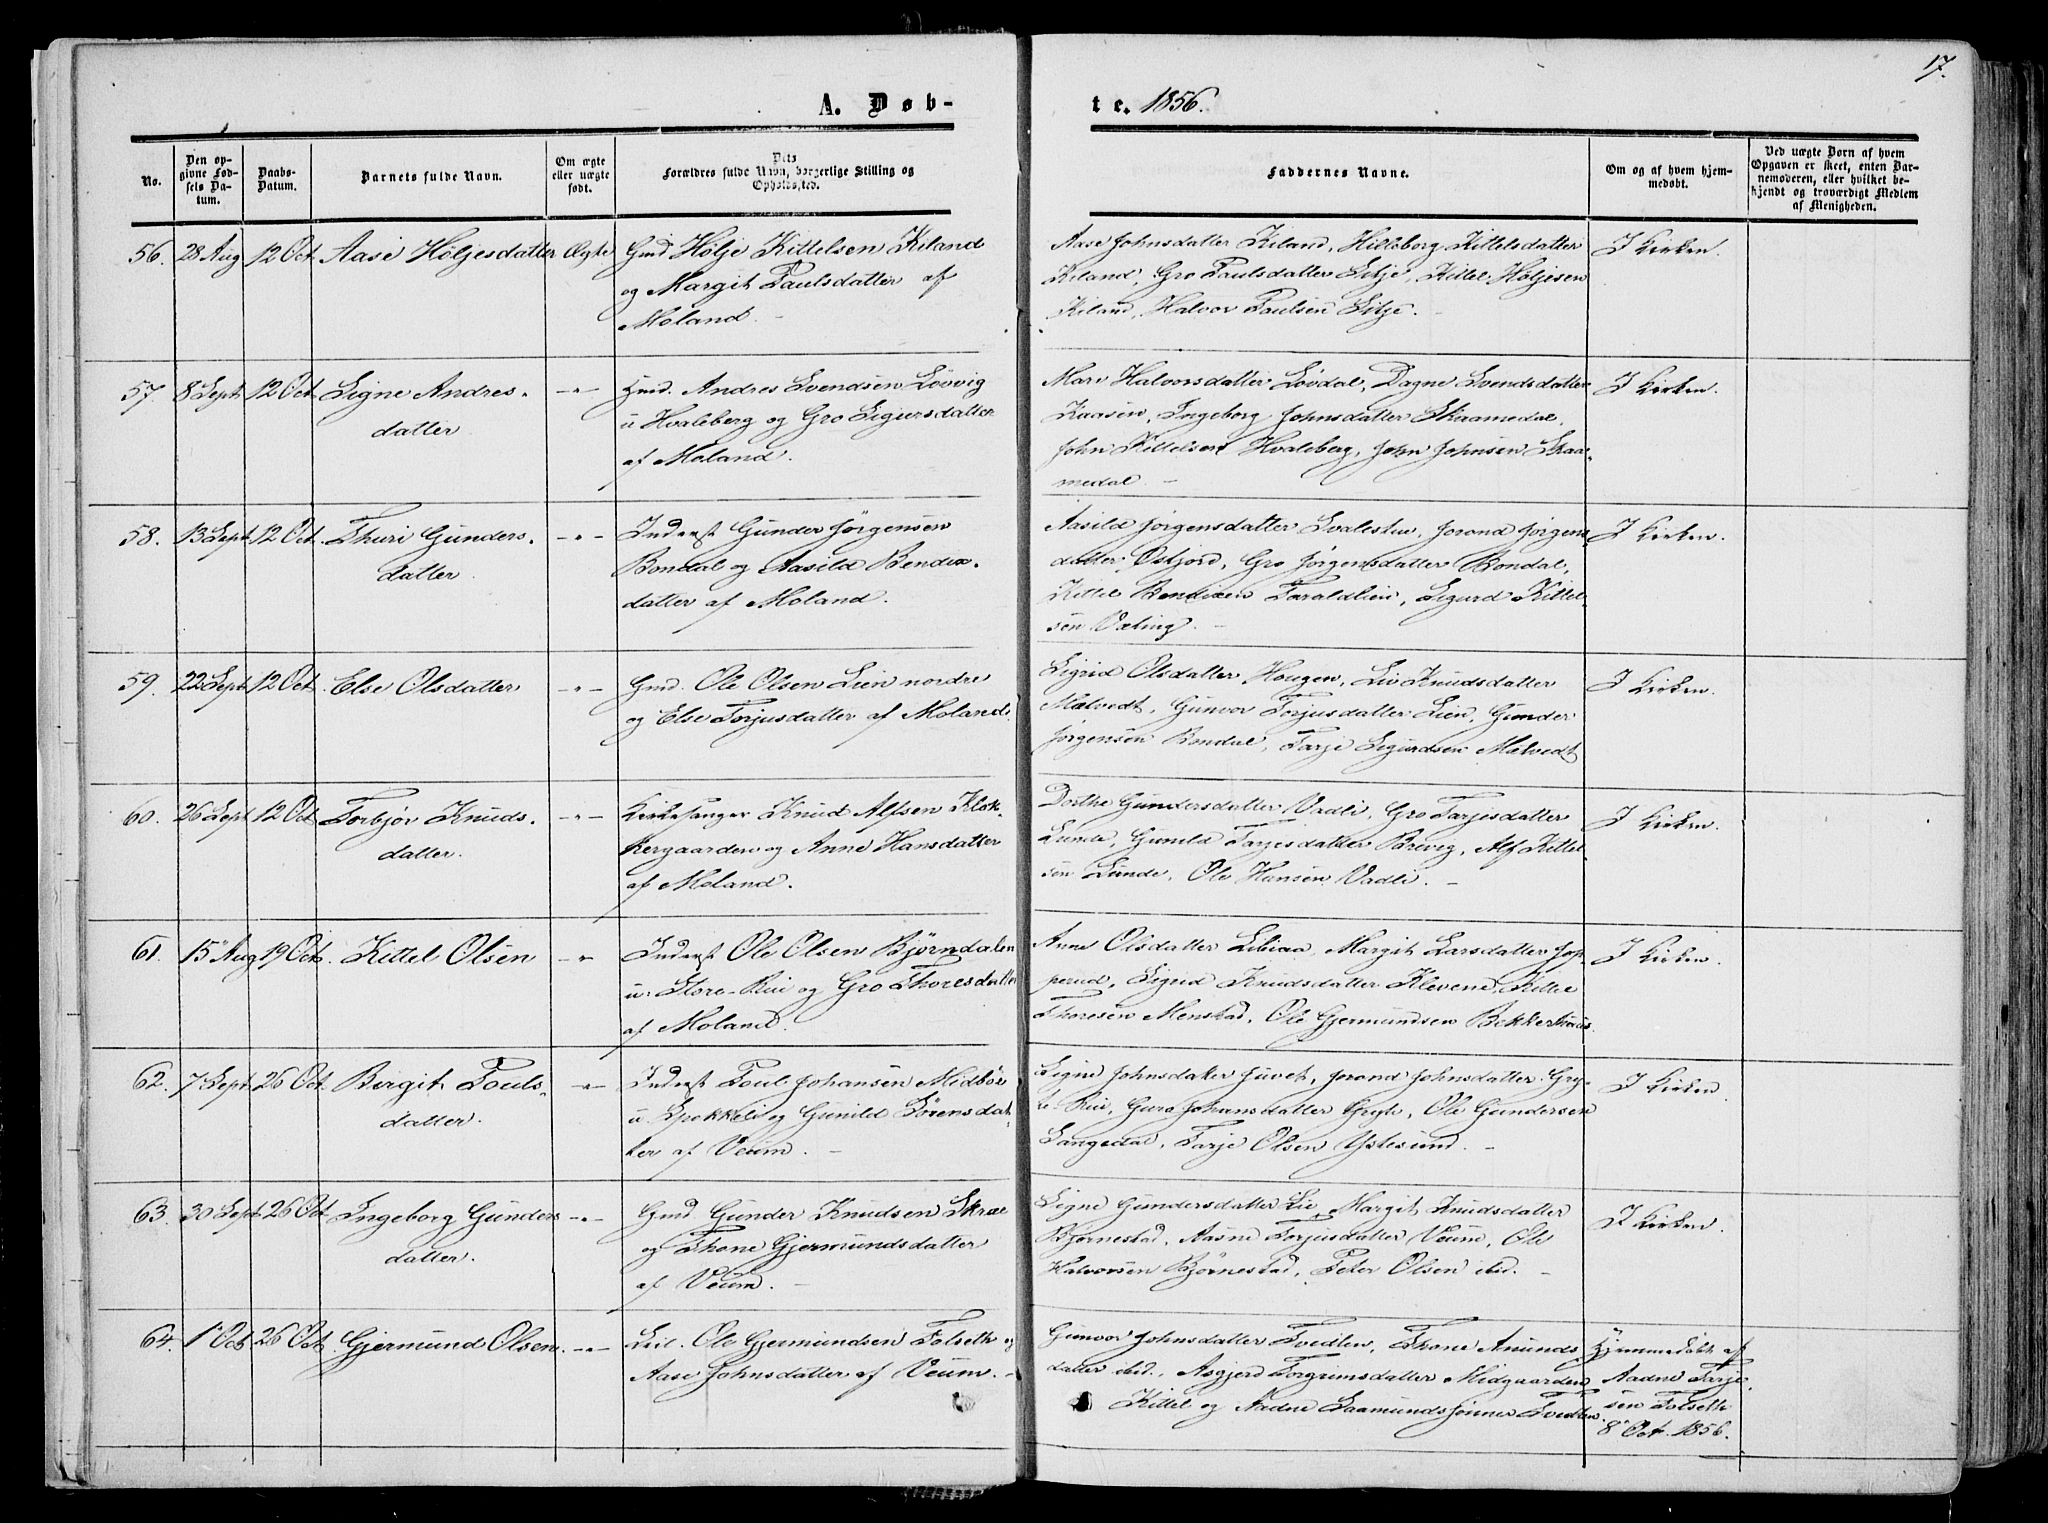 17.
A. Døb-
te. 1856.
No.
Den op-
givne Fød-
sels Da-
tum.
Daabs-
Datum.
Barnets fulde Navn.
Om ægte
eller uægte
født.
Dets
Forældres fulde Navn, borgerlige Stilling og
Opholdssted.
Faddernes Navne.
Om og af hvem hjem-
medøbt.
Ved uægte Børn af hvem
Opgaven er skeet, enten Bar-
nemoderen, eller hvilket be-
kjendt og troværdigt Medlem
af Menigheden.
56. 28 Aug 12 Oct. Aase Höljesdatter Ægte Gmd Hölje Kittelsen Kiland
og Margit Paulsdatter af
Moland.
Aase Johnsdatter Kiland, Hilleborg Kittelsdatter
Kiland, Gro Paulsdatter Sitje, Kittel Höljesen
Kiland, Halvor Paulsen Sitje.
I Kirken.
57. 8 Sept. 12 Oct. Signe Andres-
datter
-"- Hmd. Andres Svendsen Lövvig
u Hvaleberg og Gro Sigursdatter
af Moland.
Mari Halvorsdatter Lövdal, Dagne Svendsdatter
Kaasen, Ingeborg Johnsdatter Skaamedal,
John Kittelsen Hvaleberg, John Johnsen Skaa-
medal.
I Kirken.
58. 13 Sept 12 Oct. Thuri Gunders-
datter
-"- Inderst Gunder Jørgensen
Bondal og Aasild Bendix-
datter af Moland.
Aasild Jørgensdatter Svalestu, Jorond Jørgens-
datter Østjord, Gro Jørgensdatter Bondal,
Kittel Bendixen Taraldlien, Sigurd Kittel-
sen Væting.
I Kirken.
59. 22 Sept. 12 Oct. Else Olsdatter -"- Gmd. Ole Olsen Lien nordre
og Else Torjusdatter af Moland.
Sigrid Olsdatter Hougen, Liv Knudsdatter
Malvedt, Gunvor Torjusdatter Lien, Gunder
Jørgensen Bondal, Tarje Sigurdsen Malvedt
I Kirken.
60. 26 Sept. 12 Oct. Torbjør Knuds-
datter.
-"- Kirkesanger Knud Alfsen Klok-
kergaarden og Anne Hansdatter
af Moland.
Dorthe Gundersdatter Vadli, Gro Tarjesdatter
Lunde, Gunild Tarjesdatter Brevig, Alf Kittel-
sen Lunde, Ole Hansen Vadli.
I Kirken.
61. 15 Aug 19 Oct. Kittel Olsen -"- Inderst Ole Olsen Bjørndalen
u. Store-Rui og Gro Thoresdatter
af Moland.
Anne Olsdatter Libiaa, Margit Larsdatter Jop-
perud, Sigrid Knudsdatter Klevene, Kittel
Thoresen Menstad, Ole Gjermundsen Bekkestrøis.
I Kirken.
62. 7 Sept. 26 Oct. Birgit Pouls-
datter.
-"- Inderst Poul Johansen Midbø
u. Spokkeli og Gunild Sørensdat-
ter af Veum.
Signe Johnsdatter Juvet, Jorond Johnsdatter Gry-
te-Rui, Guro Johansdatter Gryte, Ole Gundersen
Langedal, Tarje Olsen Ystesund.
I Kirken.
63. 30 Sept. 26 Oct Ingeborg Gunders-
datter.
-"- Gmd Gunder Knudsen Skræ
og Thone Gjermundsdatter
af Veum.
Signe Gundersdatter Lie, Margit Knudsdatter
Bjørnestad, Aasne Torjusdatter Veum, Ole
Halvorsen Bjørnestad, Peter Olsen ibid.
I Kirken.
64. 1 Oct 26 Oct. Gjermund Olsen -"- Leil. Ole Gjermundsen Folseth og
Aase Johnsdatter af Veum.
Gunvor Johnsdatter Tvedten, Thone Amunds-
datter ibid., Asgjerd Torgrimsdatter Midgaarden,
Kittel og Aadne Saamundssønner Tvedten.
Hjemmedøbt af
Aadne Tarje-
sen Folseth
8 Oct. 1856.